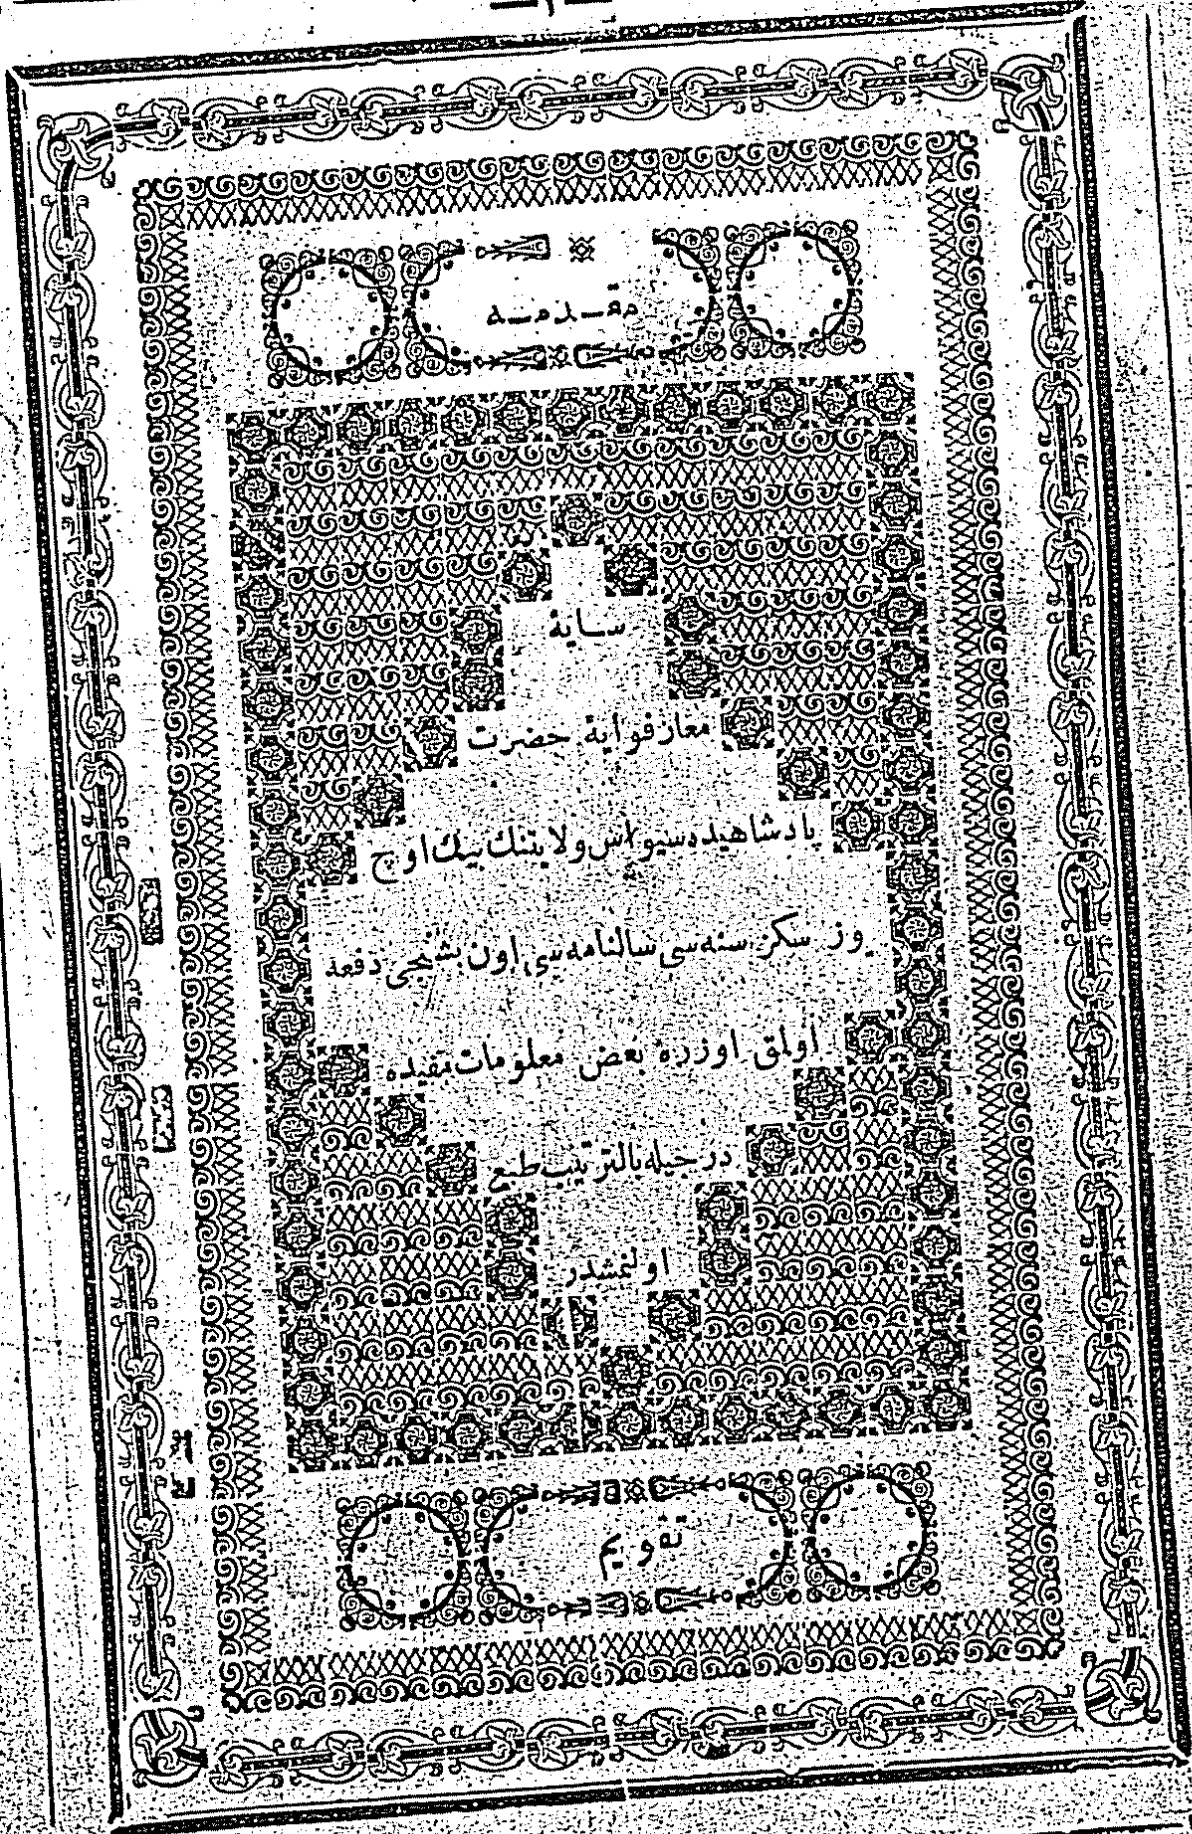 — ٢ —
مقدمه
سایۀ
معارفوایۀ حضرت
پادشاهیده سیواس ولایتنك بیك اوچ
یوز سکز سنه سی سالنامه سی اون بشنجی دفعه
اولمق اوزره بعض معلومات مفیده
درجیله بالترتیب طبع
اولنمشدر
تقویم